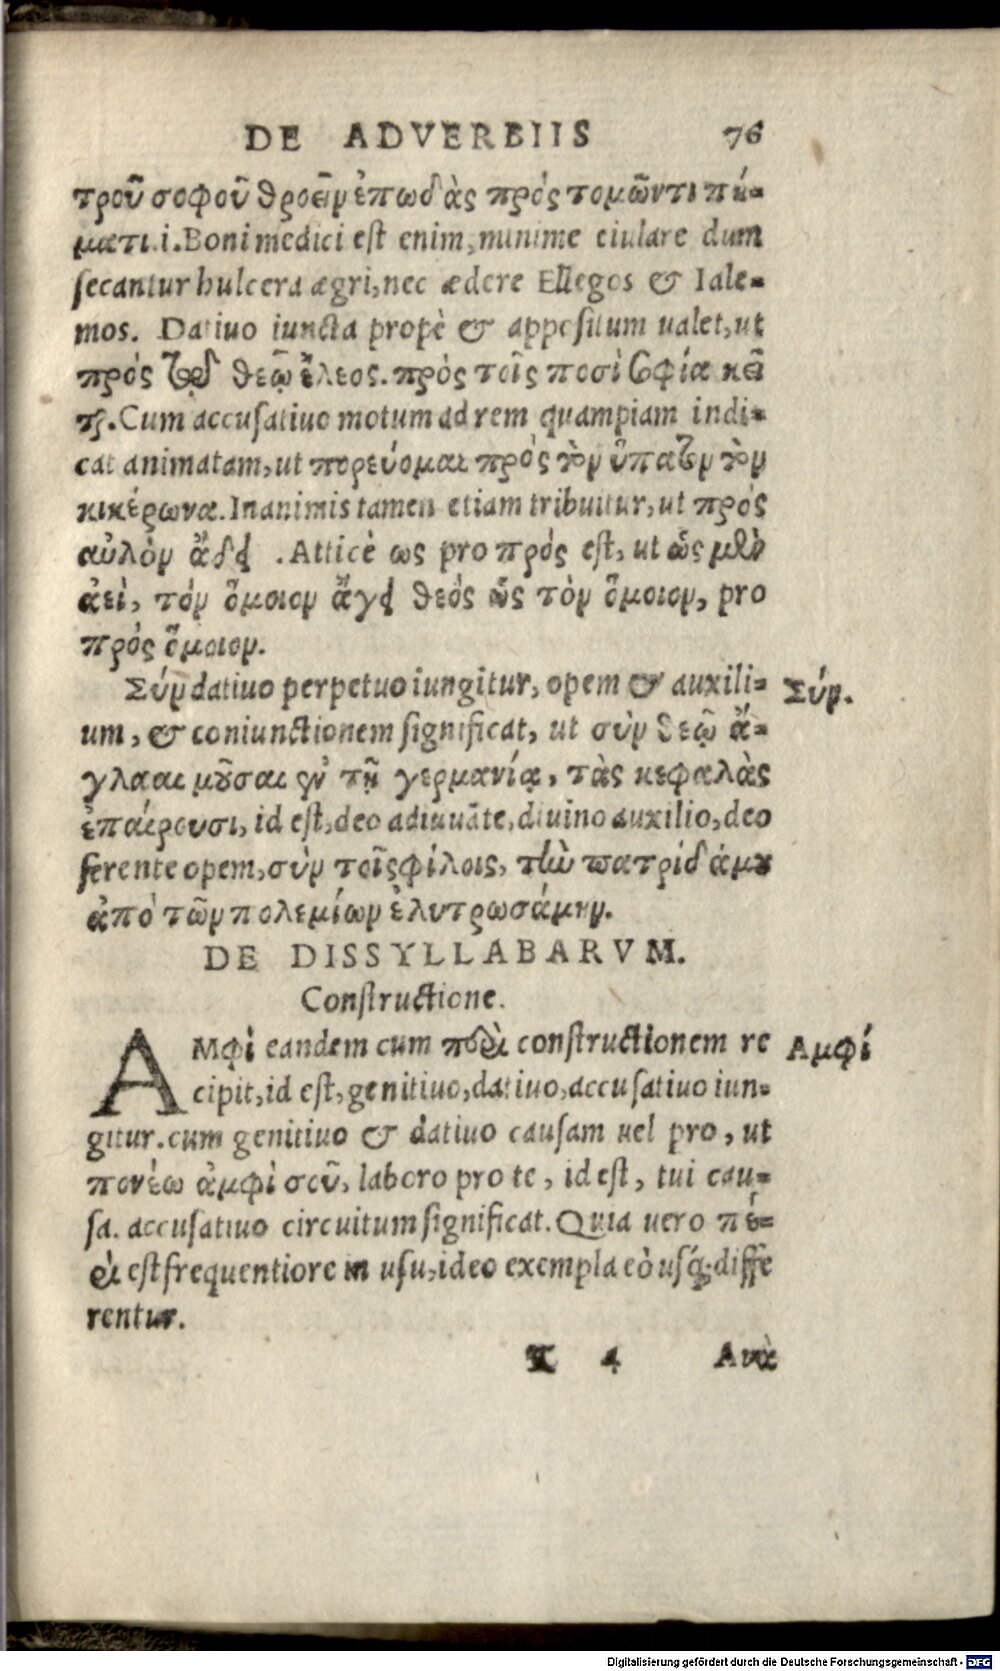 DE ADVERBIIS 76
τροῦ σοφοῦ θροεῖν ἐπωδὰς πρός τομῶντι πή=
ματι.i.Boni medici est enim, minime eiulare dum
secantur hulcera ægri, nec ædere Ellegos & Iale=
mos. Datiuo iuncta propè & appositum ualet, ut
πρός τῷ θεῷ ἔλεος. πρός τοῖς ποσὶ σοφία κεῖ
ται. Cum accusatiuo motum ad rem quampiam indi=
cat animatam, ut πορεύομαι πρός τὸν ὕπατον τὸν
κικέρωνα. Inanimis tamen etiam tribuitur, ut πρός
αὐλὸν ᾄδει . Atticè ως pro πρός est, ut ὥς
ἀεὶ, τόν ὅμοιον ἄγει θεός ὥς τὸν ὅμοιον, pro
πρός ὅμοιον.
Σύν datiuo perpetuo iungitur, opem & auxili= Σύν.
um, & coniunctionem significat, ut σὺν θεῷ ἅ=
γλααι μοῦσαι ἐν τῇ γερμανίᾳ, τὰς κεφαλὰς
ἐπαίρουσι, id est, deo adiuuāte, diuino auxilio, deo
ferente opem, σὺν τοῖς φίλοις, τὴν πατρίδά μου
ἀπό τῶν πολεμίων ἐλυτρωσάμην.
DE DISSYLLABARVM.
Constructione.
AMφὶ eandem cum περὶ constructionem re Αμφί
cipit, id est, genitiuo, datiuo, accusatiuo iun=
gitur. cum genitiuo & datiuo causam uel pro, ut
πονέω ἀμφὶ σοῦ, laboro pro te, id est, tui cau=
sa. accusatiuo circuitum significat. Quia uero πέ=
ρι est frequentiore in usu, ideo exempla eò usq́; diffe
rentur.
K 4 Ανὰ
Digitalisierung gefördert durch die Deutsche Forschungsgemeinschaft - DFG